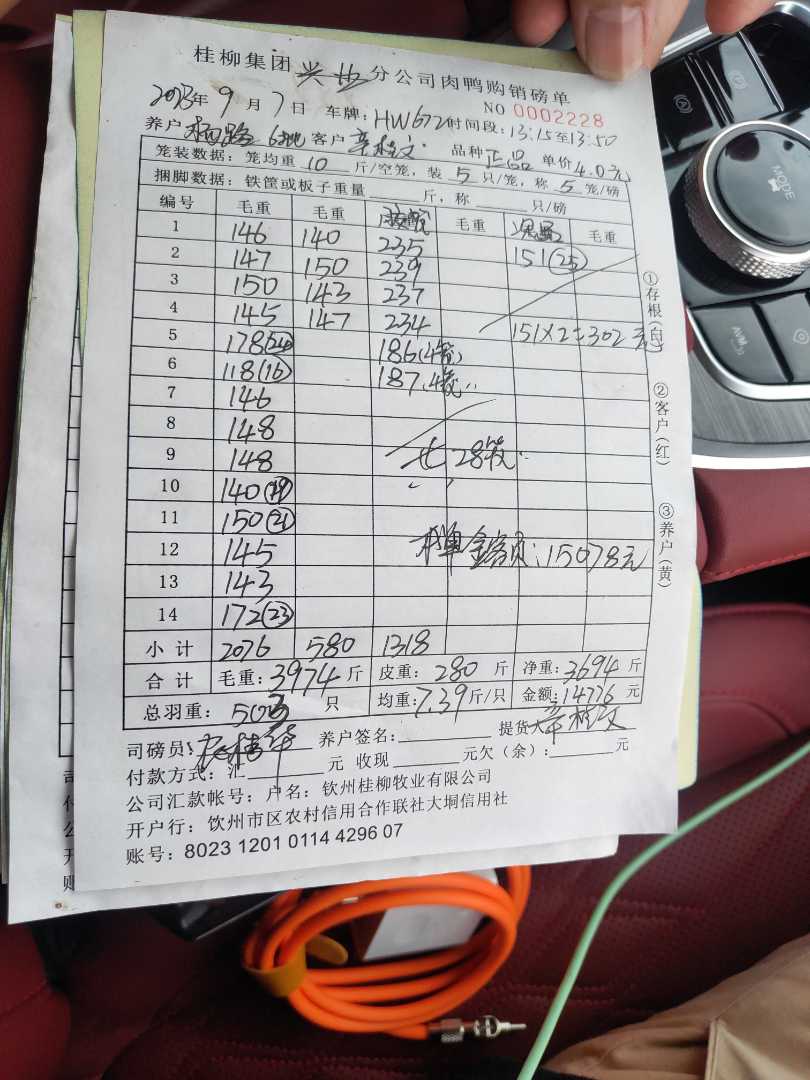 桂柳集团 分公司肉鸭购销磅单
NO 0002228
2023年 9 月 7 日 车牌: HW672 时间段: 13:15至13:50
养户 客户 品种 正品 单价 4.0元
笼装数据: 笼均重 10 斤/空笼, 装 5 只/笼, 称 5 笼/磅
捆脚数据: 铁筐或板子重量 斤, 称 只/磅
编号 毛重 毛重 毛重 毛重
1 146 140 235 151(25)
2 147 150 239
3 150 143 237
4 145 147 234 151×2=302元
5 178(24) 186(4笼)
6 118(16) 187(4笼)
7 146
8 148
9 148 28笼
10 140(19)
11 150(21)
12 145 本单金额: 15078元
13 143
14 172(23)
小计 2076 580 1318
合计 毛重: 3974 斤 皮重: 280 斤 净重: 3694 斤
总羽重: 只 均重: 7.39 斤/只 金额: 14776 元
司磅员: 养户签名: 提货
付款方式: 汇 元 收现 元欠(余): 元
公司汇款帐号: 户名: 钦州桂柳牧业有限公司
开户行: 钦州市区农村信用合作联社大垌信用社
账号: 8023 1201 0114 4296 07
①存根(白)
②客户(红)
③养户(黄)
MODE
AVM